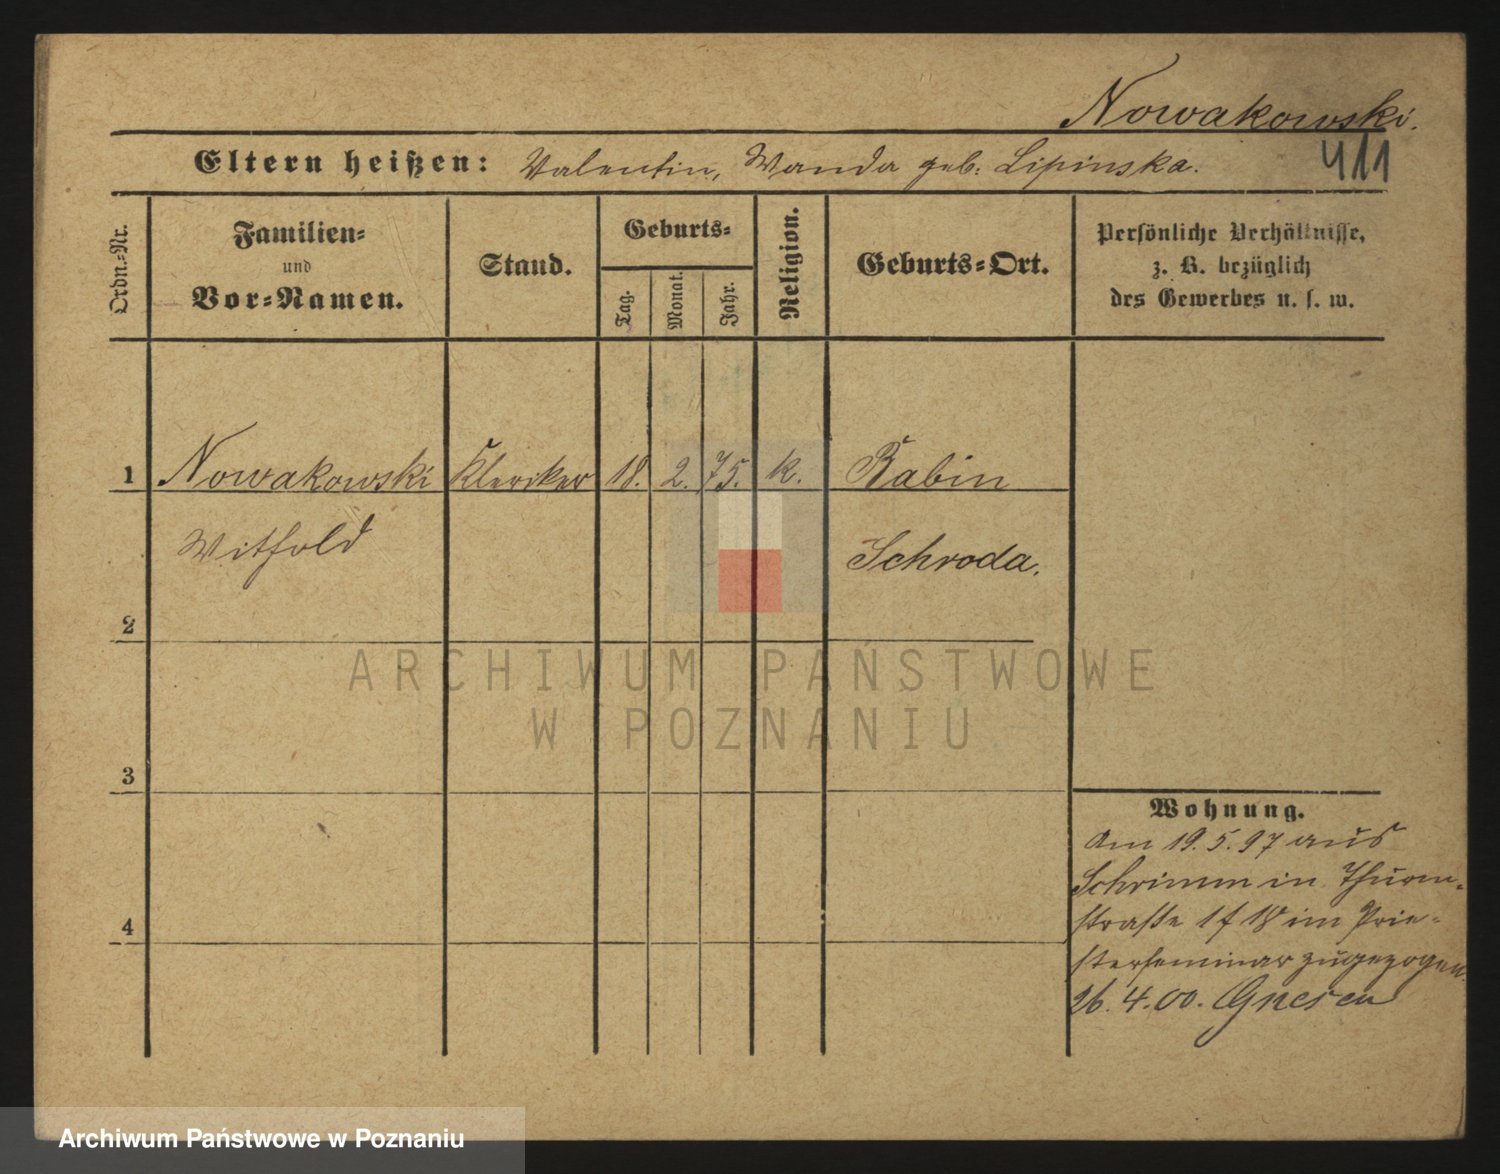 Nowakowski.
Eltern heißen: Valentin, Wanda geb. Lipinska.
411
Ordn.-Nr.
Familien-
und
Vor-Namen.
Stand.
Geburts-
Tag.
Monat.
Jahr.
Religion.
Geburts-Ort.
Persönliche Verhältnisse,
z. B. bezüglich
des Gewerbes u. s. w.
1 Nowakowski Kleriker 18. 2. 75. k. Babin
Withold Schroda.
2
ARCHIWUM PAŃSTWOWE
W POZNANIU
3
Wohnung.
Am 19.5.97 aus
Schrimm in Thurm-
straße 1 f 18 im Prie-
sterseminar zugezogen
26.4.00. Gnesen
4
Archiwum Państwowe w Poznaniu